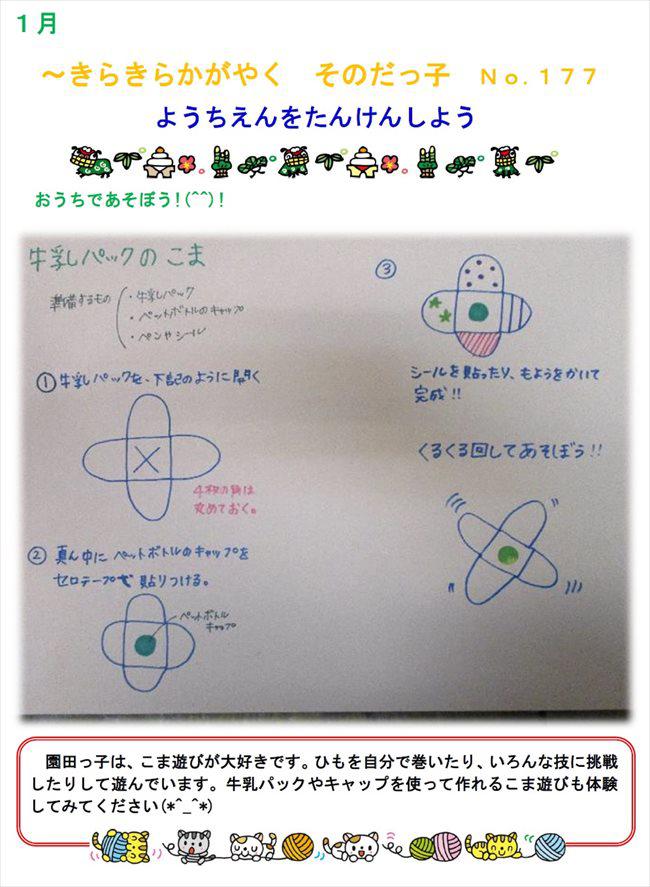 1月
～きらきらかがやく そのだっ子 No.177
ようちえんをたんけんしよう
おうちであそぼう!(^^)!
牛乳パックの こま
準備するもの
・牛乳パック
・ペットボトルのキャップ
・ペンやシール
①牛乳パックを、下記のように開く
4枚の羽は
丸めておく。
② 真ん中に ペットボトルのキャップを
セロテープで 貼りつける。
ペットボトル
キャップ
③
シールを貼ったり、もようをかいて
完成!!
くるくる回してあそぼう!!
園田っ子は、こま遊びが大好きです。ひもを自分で巻いたり、いろんな技に挑戦
したりして遊んでいます。牛乳パックやキャップを使って作れるこま遊びも体験
してみてください(*^_^*)